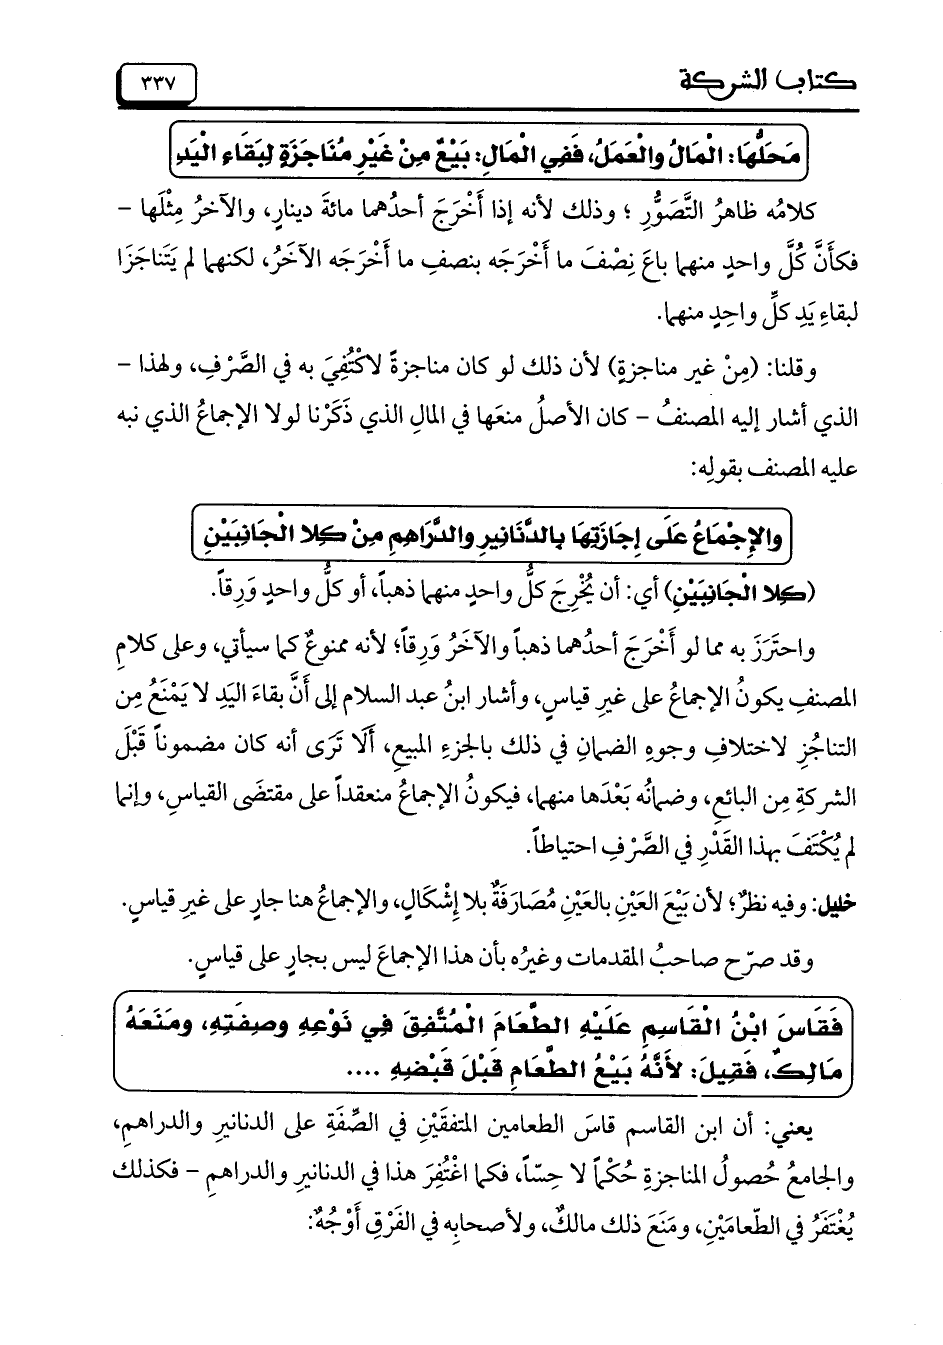 كتاب الشركة
٣٣٧
مَحَلُّهَا: الْمَالُ والْعَمَلُ، فَفِي الْمَالِ: بَيْعٌ مِنْ غَيْرِ مُنَاجَزَةٍ لِبَقَاءِ الْيَدِ
كلامُه ظاهرُ التَّصَوُّرِ ؛ وذلك لأنه إذا أَخْرَجَ أحدُهما مائةَ دينارٍ، والآخرُ مِثْلَها –
فكأَنَّ كُلَّ واحدٍ منهما باعَ نِصْفَ ما أَخْرَجَه بنصفِ ما أَخْرَجَه الآخَرُ، لكنهما لم يَتَناجَزَا
لبقاءِ يَدِ كلِّ واحِدٍ منهما.
وقلنا: (مِنْ غير مناجزةٍ) لأن ذلك لو كان مناجزةً لاكْتُفِيَ به في الصَّرْفِ، ولهذا –
الذي أشار إليه المصنفُ – كان الأصلُ منعَها في المالِ الذي ذَكَرْنا لولا الإجماعُ الذي نبه
عليه المصنف بقولِه:
والإِجْمَاعُ عَلَى إِجَازَتِهَا بِالدَّنَانِيرِ والدَّرَاهِمِ مِنْ كِلا الْجَانِبَيْنِ
(كِلا الْجَانِبَيْنِ) أي: أن يُخْرِجَ كلُّ واحدٍ منهما ذهباً، أو كلُّ واحدٍ وَرِقاً.
واحتَرَزَ به مما لو أَخْرَجَ أحدُهما ذهباً والآخَرُ وَرِقاً؛ لأنه ممنوعٌ كما سيأتي، وعلى كلامِ
المصنفِ يكونُ الإجماعُ على غيرِ قياسٍ، وأشار ابنُ عبد السلام إلى أَنَّ بقاءَ اليَدِ لا يَمْنَعُ مِن
التناجُزِ لاختلافِ وجوهِ الضمانِ في ذلك بالجزءِ المبيعِ، أَلَا تَرَى أنه كان مضموناً قَبْلَ
الشركةِ مِن البائعِ، وضمانُه بَعْدَها منهما، فيكونُ الإجماعُ منعقداً على مقتضَى القياسِ، وإنما
لم يُكْتَفَ بهذا القَدْرِ في الصَّرْفِ احتياطاً.
خليل: وفيه نظرٌ؛ لأن بَيْعَ العَيْنِ بالعَيْنِ مُصَارَفَةٌ بلا إِشْكَالٍ، والإجماعُ هنا جارٍ على غيرِ قياسٍ.
وقد صرّح صاحبُ المقدمات وغيرُه بأن هذا الإجماعَ ليس بجارٍ على قياسٍ.
فَقَاسَ ابْنُ الْقَاسِمِ عَلَيْهِ الطَّعَامَ الْمُتَّفِقَ فِي نَوْعِهِ وصِفَتِهِ، ومَنَعَهُ
مَالِكٌ، فَقِيلَ: لأَنَّهُ بَيْعُ الطَّعَامِ قَبْلَ قَبْضِهِ ....
يعني: أن ابن القاسم قاسَ الطعامين المتفقَيْن في الصِّفَةِ على الدنانيرِ والدراهمِ،
والجامعُ حُصولُ المناجزةِ حُكْماً لا حِسّاً، فكما اغْتُفِرَ هذا في الدنانيرِ والدراهمِ – فكذلك
يُغْتَفَرُ في الطّعامَيْنِ، ومَنَعَ ذلك مالكٌ، ولأصحابِه في الفَرْقِ أَوْجُهٌ: